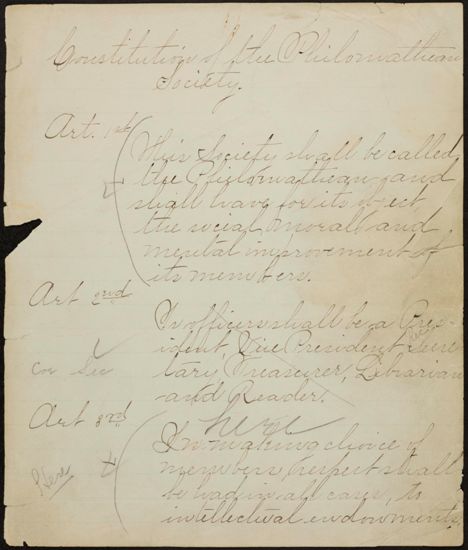 Constitution of the Philomathean
Society.
Art. 1st
This Society shall be called
the Philomathean and
shall have for its object
the social, moral and
mental improvement of
its members.
Art 2nd
Its officers shall be a Pres-
ident Vice President Secre
Cor Sec
tary Treasurer, Librarian
and Reader.
here
Art 3rd
In making choice of
members, respect shall
be had in all cases, to
intellectual endowments,